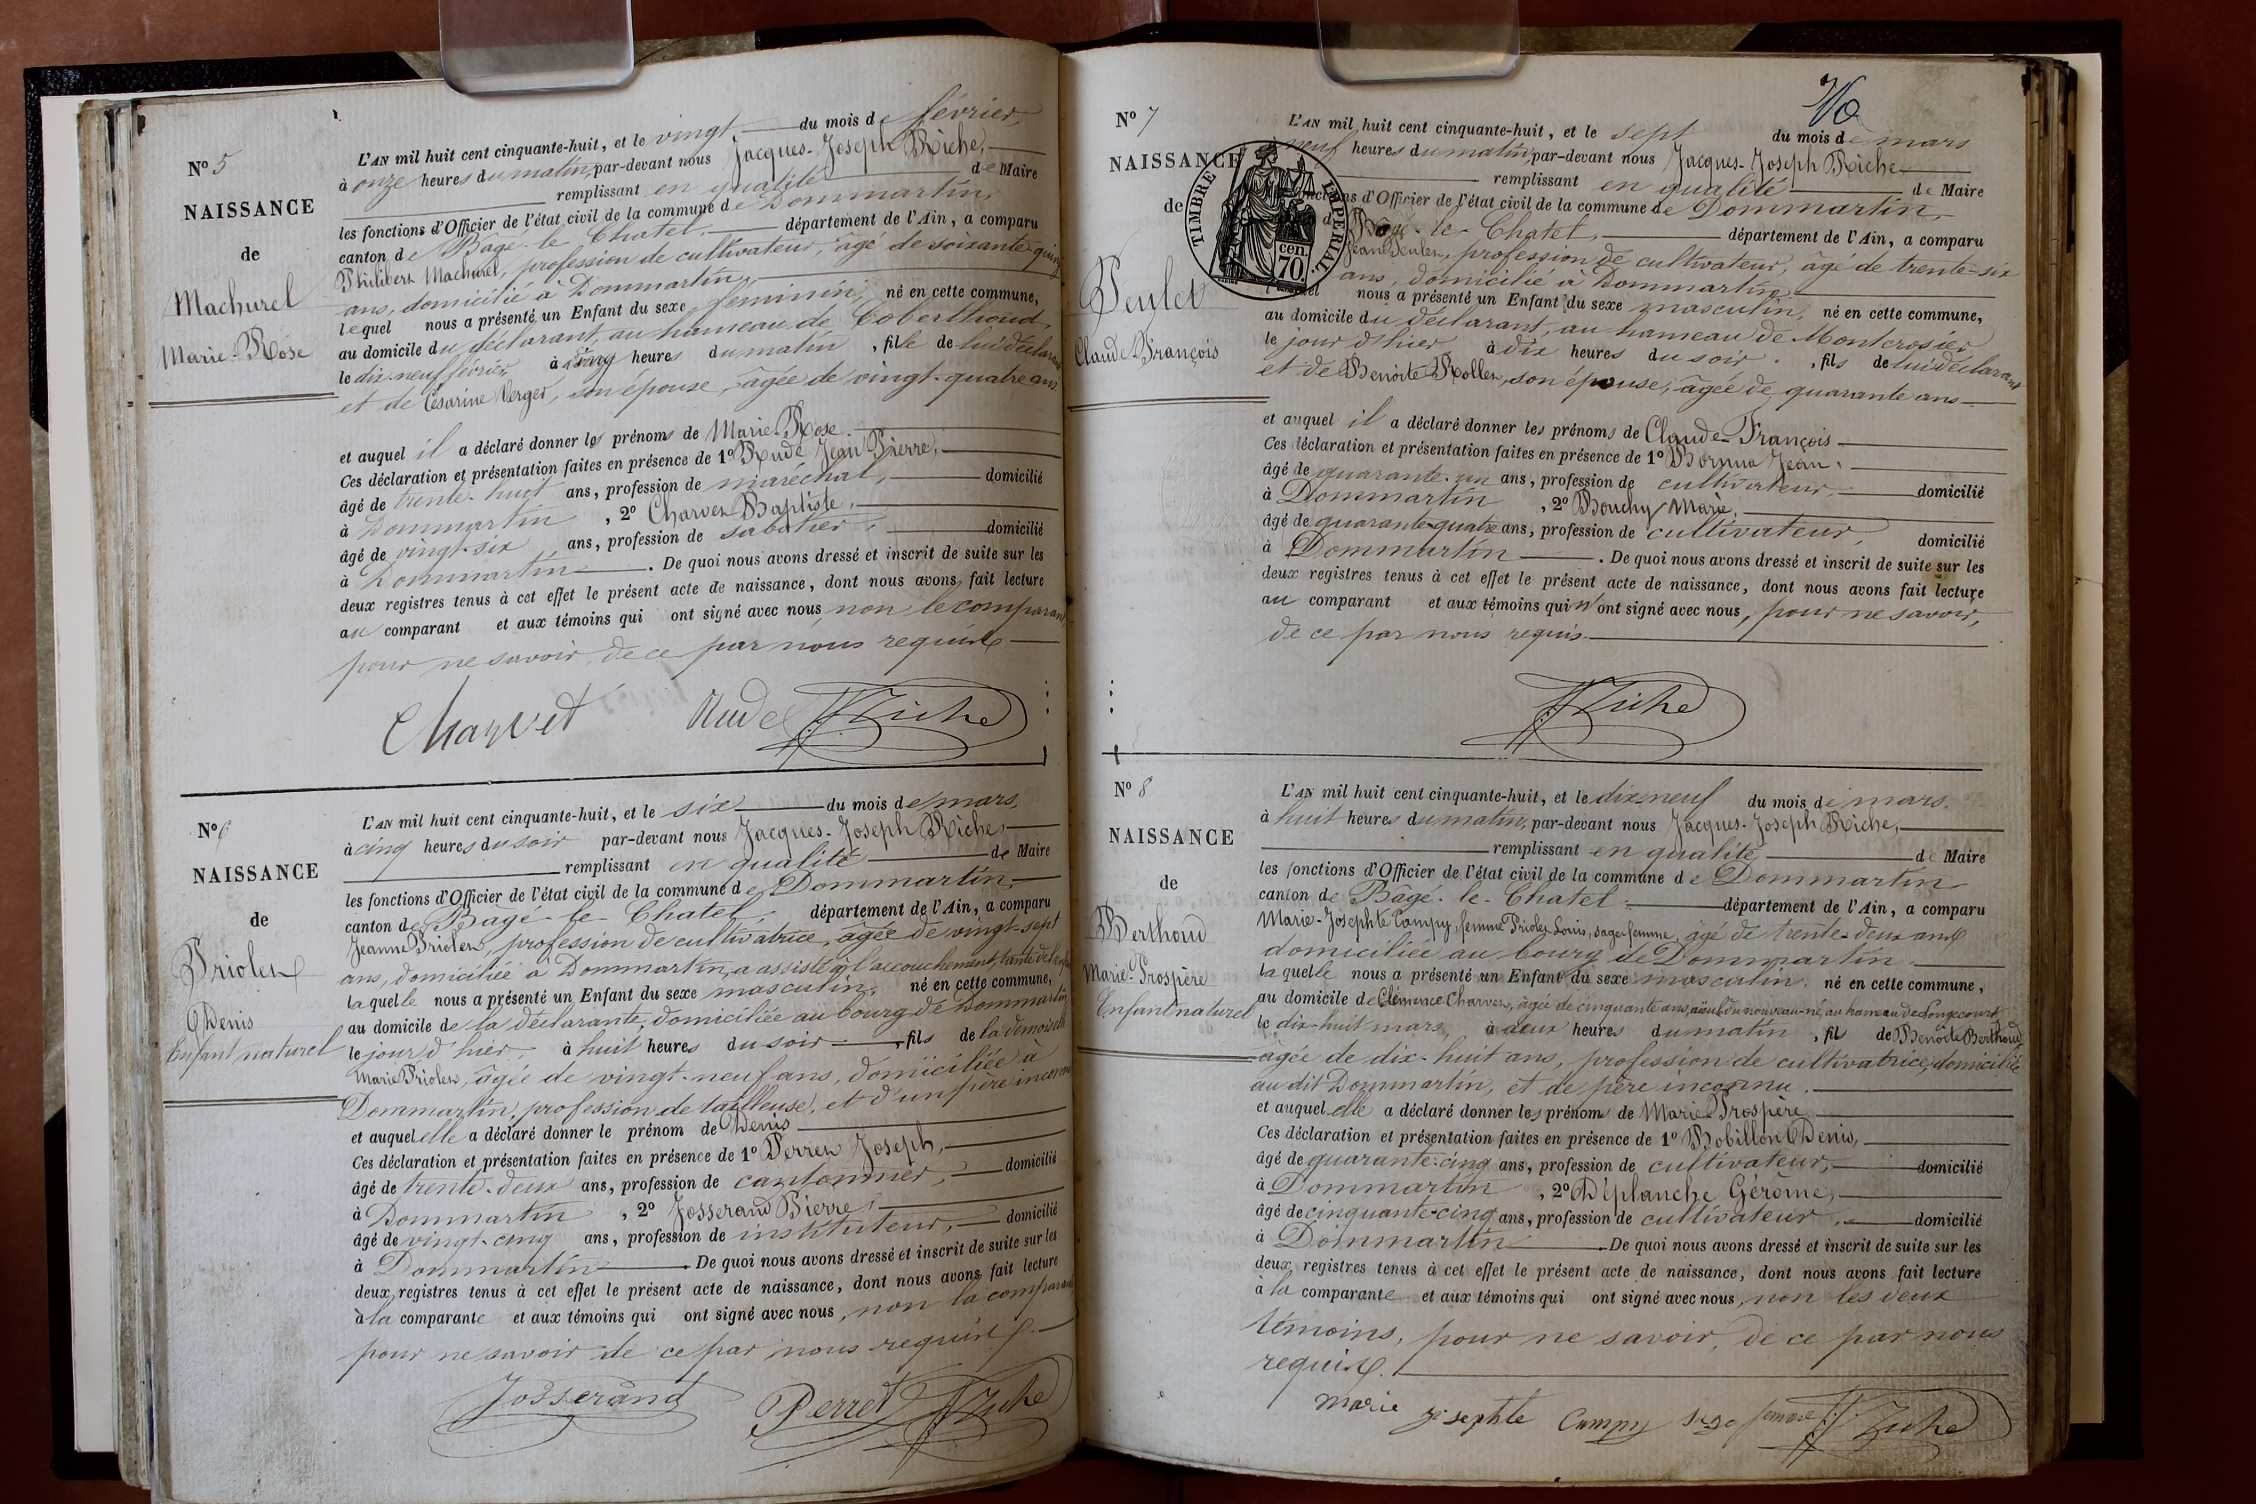 No 5
NAISSANCE
de
Machurel
Marie-Rose
L'AN mil huit cent cinquante-huit, et le vingt du mois de février
à onze heures du matin, par-devant nous Jacques-Joseph Riche,
remplissant en qualité de Maire
les fonctions d'Officier de l'état civil de la commune de Dommartin,
canton de Bâgé-le-Chatel, département de l'Ain, a comparu
Philibert Machurel, profession de cultivateur, âgé de soixante-quinze
ans, domicilié à Dommartin,
lequel nous a présenté un Enfant du sexe féminin, né en cette commune,
au domicile du déclarant, au hameau de Coberthoud,
le dix-neuf février à cinq heures du matin, fille de lui déclarant
et de Césarine Verger, son épouse, âgée de vingt-quatre ans
et auquel il a déclaré donner les prénoms de Marie-Rose.
Ces déclaration et présentation faites en présence de 1o Rude Jean Pierre,
âgé de trente-huit ans, profession de maréchal, domicilié
à Dommartin, 2o Charvet Baptiste,
âgé de vingt-six ans, profession de sabotier, domicilié
à Dommartin. De quoi nous avons dressé et inscrit de suite sur les
deux registres tenus à cet effet le présent acte de naissance, dont nous avons fait lecture
au comparant et aux témoins qui ont signé avec nous, non le comparant
pour ne savoir, de ce par nous requis
Charvet Rude JJ Riche
No 6
NAISSANCE
de
Priolet
Denis
Enfant naturel
L'AN mil huit cent cinquante-huit, et le six du mois de mars,
à cinq heures du soir par-devant nous Jacques-Joseph Riche,
remplissant en qualité de Maire
les fonctions d'Officier de l'état civil de la commune de Dommartin,
canton de Bâgé-le-Chatel, département de l'Ain, a comparu
Jeanne Priolet, profession de cultivatrice, âgée de vingt-sept
ans, domiciliée à Dommartin, a assisté à l'accouchement, tante de l'enfant
laquelle nous a présenté un Enfant du sexe masculin, né en cette commune,
au domicile de la déclarante, domiciliée au bourg de Dommartin,
le jour d'hier, à huit heures du soir, fils de la demoiselle
Marie Priolet, âgée de vingt-neuf ans, domiciliée à
Dommartin, profession de tailleuse, et d'un père inconnu
et auquel elle a déclaré donner le prénom de Denis
Ces déclaration et présentation faites en présence de 1o Perret Joseph,
âgé de trente-deux ans, profession de cantonnier, domicilié
à Dommartin, 2o Josserand Pierre,
âgé de vingt-cinq ans, profession de instituteur, domicilié
à Dommartin De quoi nous avons dressé et inscrit de suite sur les
deux registres tenus à cet effet le présent acte de naissance, dont nous avons fait lecture
à la comparante et aux témoins qui ont signé avec nous, non la comparante
pour ne savoir de ce par nous requise
Josserand Perret JJ Riche
No 7
NAISSANCE
de
Peulet
Claude-François
TIMBRE IMPERIAL
cen. 70
L'AN mil huit cent cinquante-huit, et le sept du mois de mars
neuf heures du matin, par-devant nous Jacques-Joseph Riche
remplissant en qualité de Maire
d'Officier de l'état civil de la commune de Dommartin,
Bâgé-le-Chatel, département de l'Ain, a comparu
Jean Peulet, profession de cultivateur, âgé de trente-six
ans, domicilié à Dommartin,
nous a présenté un Enfant du sexe masculin, né en cette commune,
au domicile du déclarant, au hameau de Montcrosier
le jour d'hier à dix heures du soir, fils de lui déclarant
et de Benoîte Rollet, son épouse, âgée de quarante ans
et auquel il a déclaré donner les prénoms de Claude-François
Ces déclaration et présentation faites en présence de 1o Jean,
âgé de quarante-un ans, profession de cultivateur, domicilié
à Dommartin, 2o Bouchy Marie,
âgé de quarante-quatre ans, profession de cultivateur, domicilié
à Dommartin. De quoi nous avons dressé et inscrit de suite sur les
deux registres tenus à cet effet le présent acte de naissance, dont nous avons fait lecture
au comparant et aux témoins qui n'ont signé avec nous, pour ne savoir,
de ce par nous requis.
JJ Riche
No 8
NAISSANCE
de
Berthoud
Marie-Prospère
Enfant naturel
L'AN mil huit cent cinquante-huit, et le dix-neuf du mois de mars.
à huit heures du matin, par-devant nous Jacques-Joseph Riche,
remplissant en qualité de Maire
les fonctions d'Officier de l'état civil de la commune de Dommartin
canton de Bâgé-le-Chatel, département de l'Ain, a comparu
Marie-Josephte Campy, femme Priolet Louis, sage-femme, âgé de trente-deux ans
domiciliée au bourg de Dommartin
laquelle nous a présenté un Enfant du sexe masculin, né en cette commune,
au domicile de Clémence Charvet, âgée de cinquante ans, aïeule du nouveau-né, au hameau de Longecourt
le dix-huit mars, à deux heures du matin, fils de Benoîte Berthoud
âgée de dix-huit ans, profession de cultivatrice, domiciliée
au dit Dommartin, et de père inconnu.
et auquel elle a déclaré donner les prénoms de Marie Prospère,
Ces déclaration et présentation faites en présence de 1o Bobillon Denis,
âgé de quarante-cinq ans, profession de cultivateur, domicilié
à Dommartin, 2o Déplanche Gérôme,
âgé de cinquante-cinq ans, profession de cultivateur, domicilié
à Dommartin De quoi nous avons dressé et inscrit de suite sur les
deux registres tenus à cet effet le présent acte de naissance, dont nous avons fait lecture
à la comparante et aux témoins qui ont signé avec nous, non les deux
témoins, pour ne savoir, de ce par nous
requis.
Marie josephte Campy sage femme JJ Riche